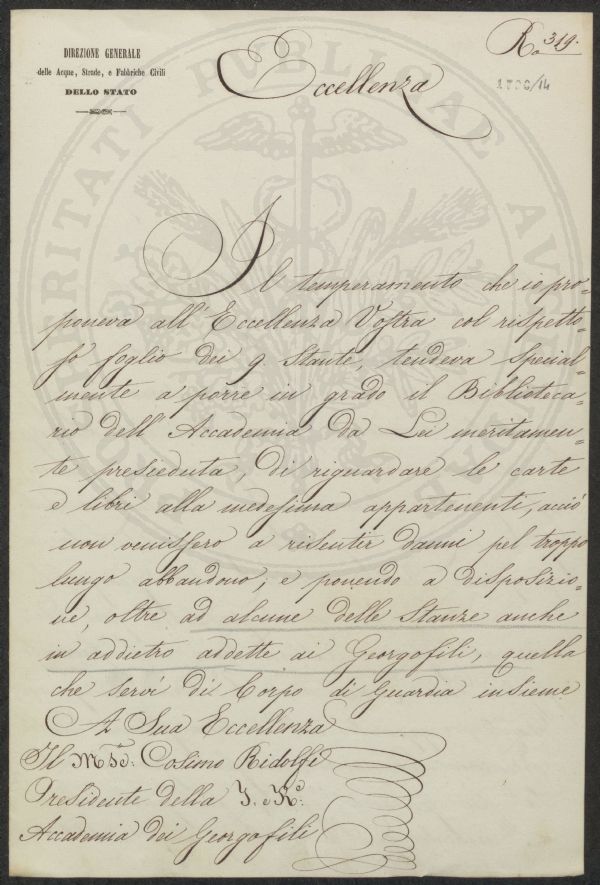 DIREZIONE GENERALE
delle Acque, Strade, e Fabbriche Civili
DELLO STATO
Rº 319.
Eccellenza
Il temperamento che io pro-
poneva all'Eccellenza Vostra col rispetto-
so foglio dei 9. Stante, tendeva special-
mente a porre in grado il Biblioteca-
rio dell'Accademia da Lei meritamen-
te presieduta, di riguardare le carte
e libri alla medesima appartenenti, acciò
non venissero a risentir danni pel troppo
lungo abbandono; e ponendo a disposizio-
ne, oltre ad alcune delle Stanze anche
in addietro addette ai Georgofili, quella
che servì di Corpo di Guardia insieme
A Sua Eccellenza
Il Mse: Cosimo Ridolfi
Presidente della I. e R.
Accademia dei Georgofili